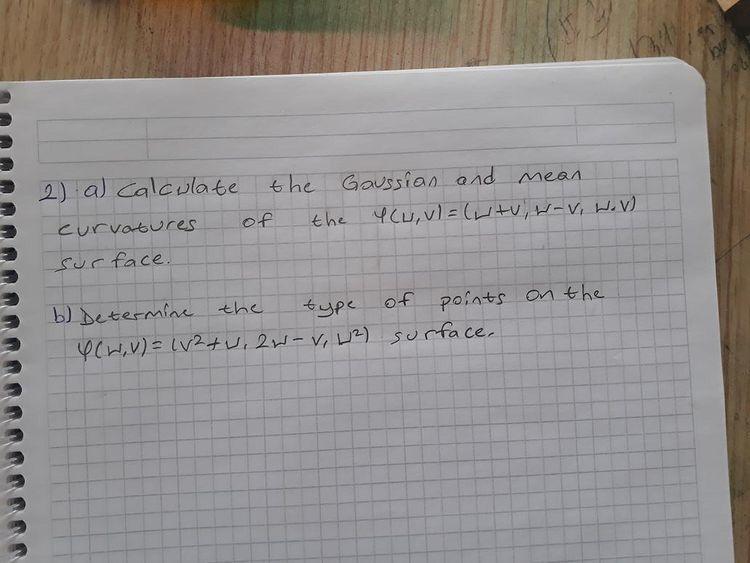 2) a) Calculate the Gaussian and mean
curvatures of the φ(u,v)=(u+v, u-v, u.v)
surface.
b) Determine the type of points on the
φ(u,v)=(v²+u, 2u-v, u²) surface.